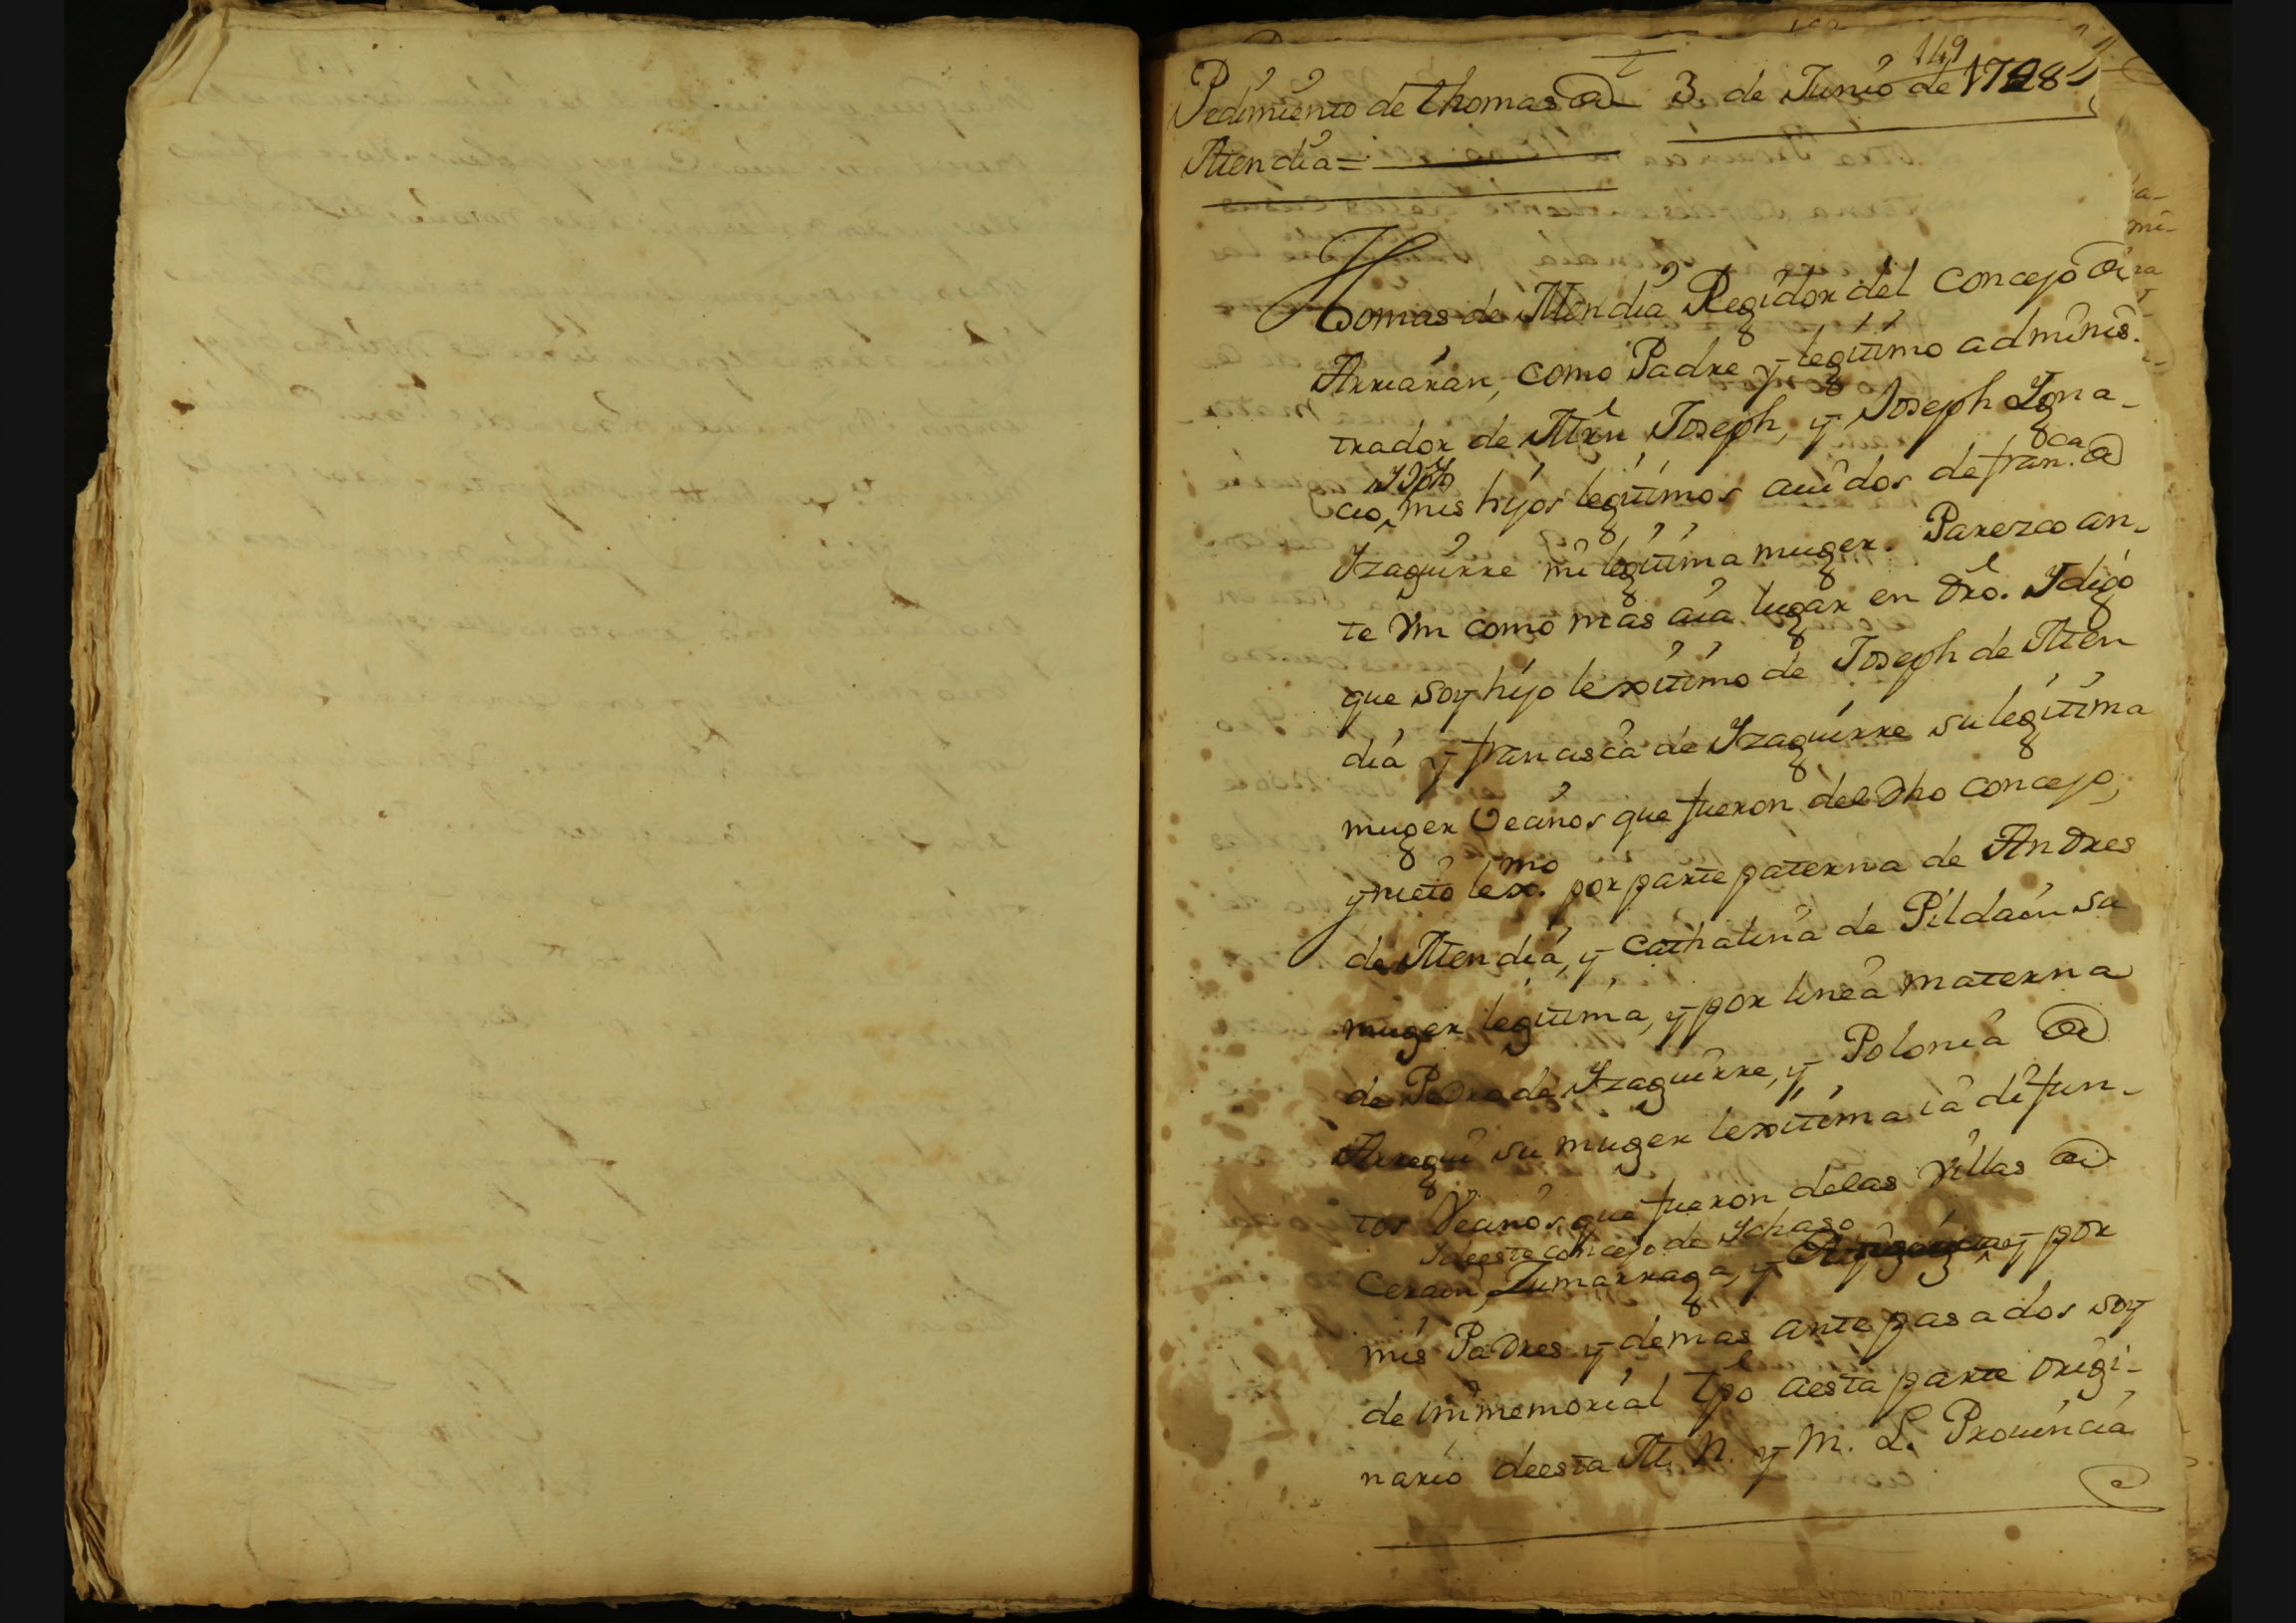 149
Pedimiento de thomas de 3. de Junio de 1728
Mendia =
Thomas de Mendia Regidor del concejo de
Arriarán, como Padre y legitimo adminis-
trador de Mrn Joseph, y Joseph Ygna-
cio, mis hijos legitimos auidos de fran.ca de
Yzaguirre mi legitima muger. Parezco an-
te Vm como mas aia lugar en dro. Y digo
que soy hijo lexitimo de Joseph de Men
dia y francisca de Yzaguirre su legitima
muger Vecinos que fueron del dho concejo,
y nieto lex.mo por parte paterna de Andres
de Mendia, y Cathalina de Pildain su
muger legitima, y por linea materna
de Pedro de Yzaguirre, y Polonia de
Aregui su muger lexitima ia difun-
tos Vecinos que fueron delas Villas de
Y deeste concejo de Ichaso
Cerain, Zumarraga, y y por
mis Padres y demas antepasados soy
de immemorial tpo aesta parte origi-
nario deesta M. N. y M. L. Prouincia